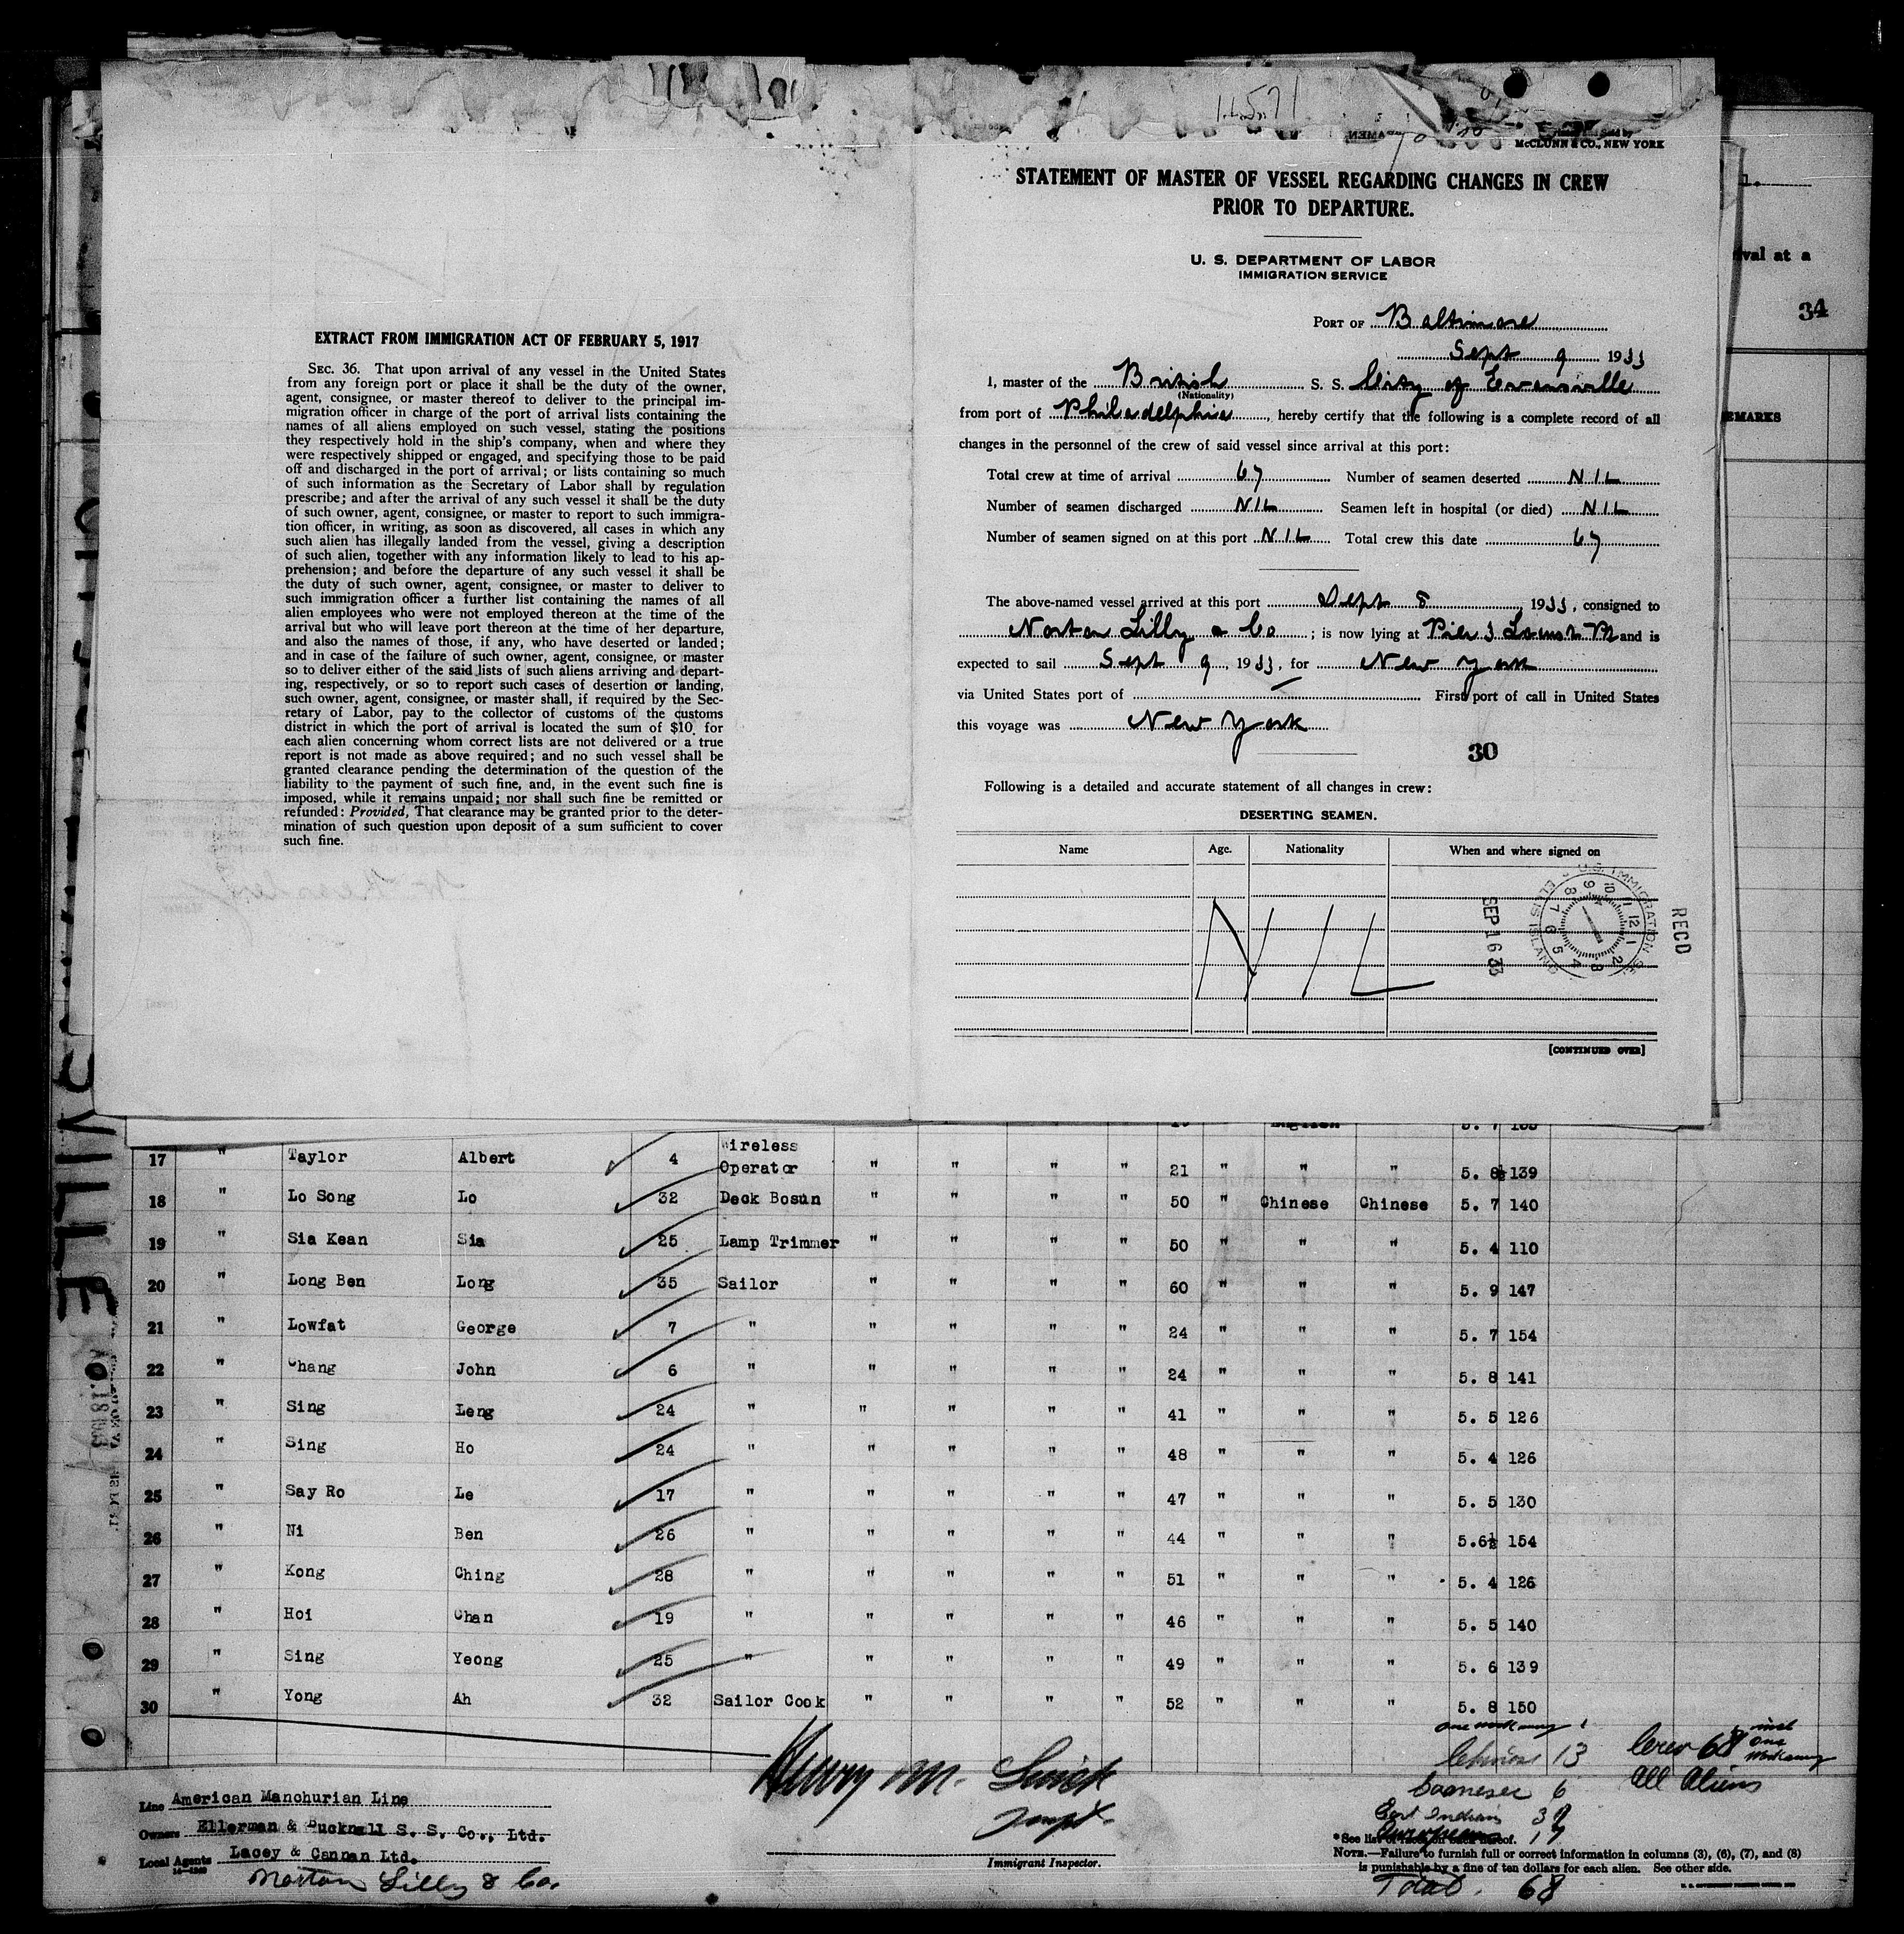 11571
McCLUNN & CO., NEW YORK
EXTRACT FROM IMMIGRATION ACT OF FEBRUARY 5, 1917
SEC. 36. That upon arrival of any vessel in the United States
from any foreign port or place it shall be the duty of the owner,
agent, consignee, or master thereof to deliver to the principal im-
migration officer in charge of the port of arrival lists containing the
names of all aliens employed on such vessel, stating the positions
they respectively hold in the ship's company, when and where they
were respectively shipped or engaged, and specifying those to be paid
off and discharged in the port of arrival; or lists containing so much
of such information as the Secretary of Labor shall by regulation
prescribe; and after the arrival of any such vessel it shall be the duty
of such owner, agent, consignee, or master to report to such immigra-
tion officer, in writing, as soon as discovered, all cases in which any
such alien has illegally landed from the vessel, giving a description
of such alien, together with any information likely to lead to his ap-
prehension; and before the departure of any such vessel it shall be
the duty of such owner, agent, consignee, or master to deliver to
such immigration officer a further list containing the names of all
alien employees who were not employed thereon at the time of the
arrival but who will leave port thereon at the time of her departure,
and also the names of those, if any, who have deserted or landed;
and in case of the failure of such owner, agent, consignee, or master
so to deliver either of the said lists of such aliens arriving and depart-
ing, respectively, or so to report such cases of desertion or landing,
such owner, agent, consignee, or master shall, if required by the Sec-
retary of Labor, pay to the collector of customs of the customs
district in which the port of arrival is located the sum of $10. for
each alien concerning whom correct lists are not delivered or a true
report is not made as above required; and no such vessel shall be
granted clearance pending the determination of the question of the
liability to the payment of such fine, and, in the event such fine is
imposed, while it remains unpaid; nor shall such fine be remitted or
refunded: Provided, That clearance may be granted prior to the deter-
mination of such question upon deposit of a sum sufficient to cover
such fine.
STATEMENT OF MASTER OF VESSEL REGARDING CHANGES IN CREW
PRIOR TO DEPARTURE.
U. S. DEPARTMENT OF LABOR
IMMIGRATION SERVICE
PORT OF Baltimore
Sept 9 1933
I, master of the British S. S. City of Evansville
(Nationality)
from port of Philadelphia, hereby certify that the following is a complete record of all
changes in the personnel of the crew of said vessel since arrival at this port:
Total crew at time of arrival 67 Number of seamen deserted NIL
Number of seamen discharged NIL Seamen left in hospital (or died) NIL
Number of seamen signed on at this port NIL Total crew this date 67
The above-named vessel arrived at this port Sept 8 1933, consigned to
Norton Lilly & Co ; is now lying at Pier 3 Locust Pt and is
expected to sail Sept 9, 1933, for New York
via United States port of First port of call in United States
this voyage was New York
30
Following is a detailed and accurate statement of all changes in crew:
DESERTING SEAMEN.
Name Age. Nationality When and where signed on
NIL
RECD
SEP 16 33
U.S. IMMIGRATION SE
ELLIS ISLAND
[CONTINUED OVER]
val at a
34
EMARKS
VILLE
English 5. 7
17 " Taylor Albert 4 Wireless Operator " " " " 21 " " " 5. 8½ 139
18 " Lo Song Lo 32 Deck Bosun " " " " 50 " Chinese Chinese 5. 7 140
19 " Sia Kean Sia 25 Lamp Trimmer " " " " 50 " " " 5. 4 110
20 " Long Ben Long 35 Sailor " " " " 60 " " " 5. 9 147
21 " Lowfat George 7 " " " " " 24 " " " 5. 7 154
22 " Chang John 6 " " " " " 24 " " " 5. 8 141
23 " Sing Leng 24 " " " " " 41 " " " 5. 5 126
24 " Sing Ho 24 " " " " " 48 " " " 5. 4 126
25 " Say Ro Le 17 " " " " " 47 " " " 5. 5 130
26 " Ni Ben 26 " " " " " 44 " " " 5.6½ 154
27 " Kong Ching 28 " " " " " 51 " " " 5. 4 126
28 " Hoi Chan 19 " " " " " 46 " " " 5. 5 140
29 " Sing Yeong 25 " " " " " 49 " " " 5. 6 139
30 " Yong Ah 32 Sailor Cook " " " " 52 " " " 5. 8 150
one workaway 1
Chinese 13
6
East Indian
Europeans 17
Total. 68
Crew 68 incl one workaway
All Aliens
Line American Manchurian Line
Owners Ellerman & Bucknall S. S. Co., Ltd.
Local Agents Lacey & Cannan Ltd.
Norton Lilly & Co.
Henry M.
Immigrant Inspector.
*See list of races on back hereof.
NOTE.—Failure to furnish full or correct information in columns (3), (6), (7), and (8)
is punishable by a fine of ten dollars for each alien. See other side.